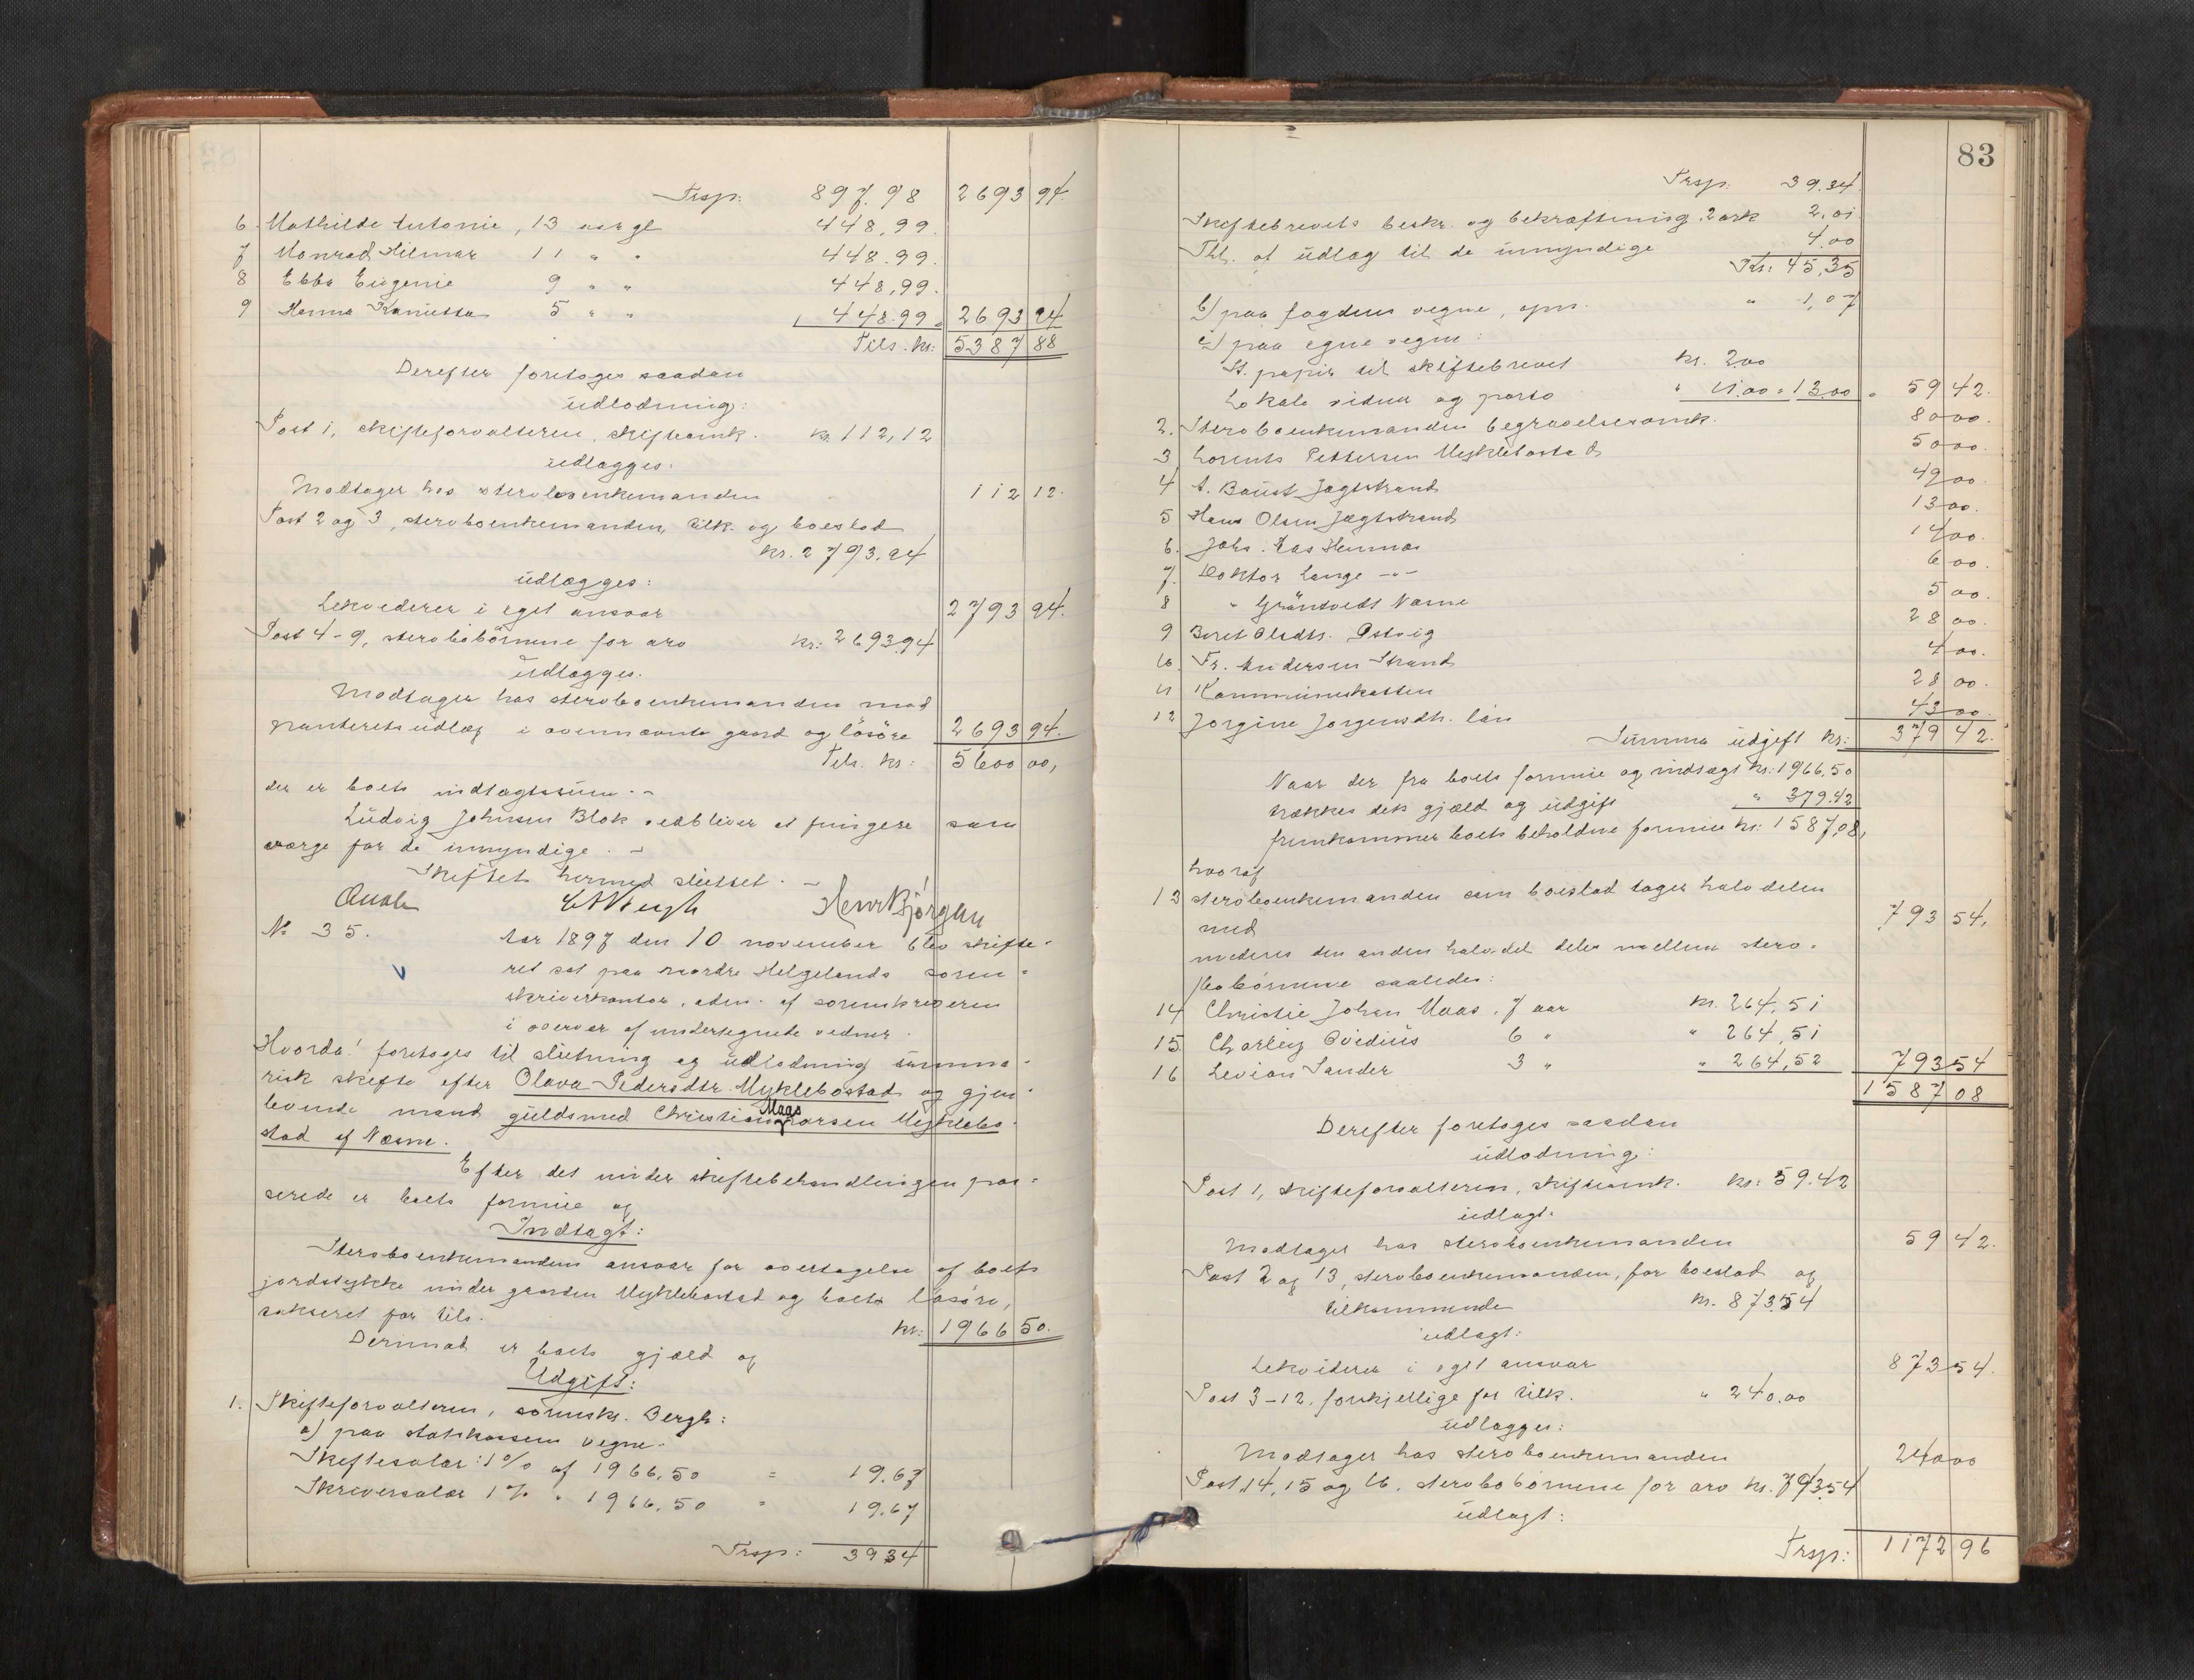 Trsp: 897.98 2693 94.
6. Mathilde Antonie, 13 aar gl 448,99.
7 Monrad Hilmar 11 " " 448.99.
8 Ebba Eugenie 9 " " 448,99.
9 Hanna 5 " " 448.99 = 2693 94
Tils. kr: 5387 88
Derefter foretoges saadan
udlodning:
Post 1, skifteforvalteren, skifteomk. kr. 112,12
udlægges:
Modtager hos stervboenkemanden 112 12.
Post 2 og 3, stervboenkemanden, tilk. og boeslod
kr. 2793.94
udlægges:
Lekvederer i eget ansvar 2793 94.
Post 4-9, stervbobörnene for arv kr: 2693.94
udlægges.
Modtager hos stervboenkemanden mod
panteretsudlæg i ovennævnte gaard og lösöre 2693 94.
Tils. kr: 5600 00,
der er boets indtægtssum. -
Ludvig Johnsen Blok vedbliver at fungere som
værge for de umyndige. -
Skiftet hermed sluttet. -
Qvale CABergh Henr Bjørgan
No 35. Aar 1897 den 10 november blev skifte-
ret sat paa Nordre Helgelands soren-
skriverkontor, adm. af sorenskriveren
i overvær af undertegnede vidner.
Hvorda! foretoges til slutning og udlodning summa-
risk skifte efter Olava Pedersdtr. Myklebostad og gjen-
levende mand guldsmed Christian Maas Larsen Myklebo-
stad af Næsne.
Efter det under skiftebehandlingen pas-
serede er boets formue og
Indtægt:
Stervboenkemandens ansvar for overtagelse af boets
jordstykke under gaarden Myklebostad og boets lösöre,
takseret for tils. kr: 1966 50.
Derimod er boets gjæld og
Udgift:
1. Skifteforvalteren, sorenskr. Bergh:
a) paa statskassens vegne.
Skiftesalær: 1% af 1966,50 = 19.67
Skriversalær 1% " 1966,50 " 19.67
Trsp: 39 34
83
Trsp: 39.34
Skiftebrevets beskr. og bekræftning. 2 ark 2.01
Thl. af udlæg til de umyndige 4.00
Kr: 45,35
b) paa fogdens vegne, " 1,07
c) paa egne vegne:
St. papir til skiftebrevet kr. 2.00
Lokale vidner og porto " 11.00 = 13.00 = 59 42.
2. Stervboenkemanden begravelsesomk. 80 00.
3 Lorents Pettersen Myklebostad 50 00.
4 A. Baust Jægtstrand 49 00.
5 Hans Olsen Jægtstrand 13 00.
6. Johs. Hemnæs 14 00.
7. Doktor Lange -"- 6 00.
8 " Gröntvedt Næsne 5 00.
9 Beret Olsdtr. Østvig 28 00.
10. Fr. Andersen Strand 4 00.
11 Kommunekassen 28 00.
12 Jorgine Jorgensdtr. lön 43 00.
Summa udgift kr: 379 42.
Naar der fra boets formue og indtægt kr: 1966,50
trækkes dets gjæld og udgift " 379.42
fremkommer boets beholdne formue kr: 1587,08,
hvoraf
13 stervboenkemanden som boeslod tager halvdelen
med 793 54.
medens den anden halvdel deles mellem sterv-
bobörnene saaledes:
14 Christie Johan Maas, 7 aar kr. 264,51
15. Charley Ovidius 6 " " 264,51
16 Levian Sander 3 " " 264,52 793 54
1587 08
Derefter foretoges saadan
udlodning:
Post 1, skifteforvalteren, skifteomk. kr: 59.42
udlagt:
Modtager hos stervboenkemanden 59 42.
Post 2 og 13, stervboenkemanden, for boeslod og
tilkommende kr. 873.54
udlagt:
Lekviderer i eget ansvar 873 54.
Post 3-12, forskjellige for tilk. " 240.00
udlægges:
Modtager hos stervboenkemanden 240 00
Post 14, 15 og 16, stervbobörnene for arv kr. 793.54
udlagt:
Trsp: 1172 96